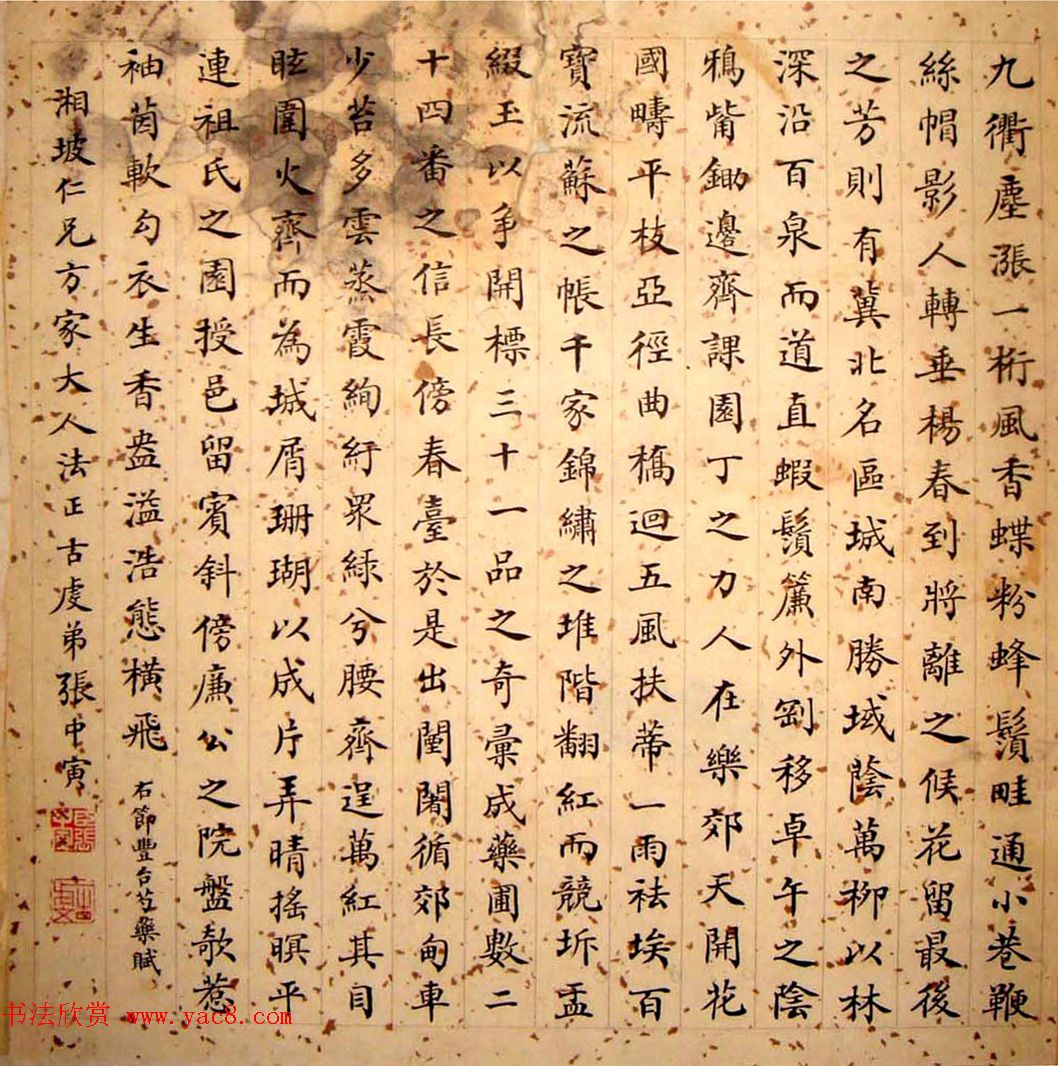 九衢塵漲一桁風香蝶粉蜂鬚畦通小巷鞭
絲帽影人轉垂楊春到將離之候花留最後
之芳則有冀北名區城南勝域蔭萬柳以林
深沿百泉而道直蝦鬚簾外劚移卓午之陰
鴉觜鋤邊齊課園丁之力人在樂郊天開花
國疇平枝亞徑曲橋迴五風扶蒂一雨祛埃百
寶流蘇之帳千家錦繡之堆階翻紅而競坼盂
綴玉以爭開標三十一品之奇彙成藥圃數二
十四番之信長傍春臺於是出闉闍循郊甸車
少苔多雲蒸霞絢紆眾綠兮腰齊逞萬紅其目
眩圍火齊而為城屑珊瑚以成片弄晴搖暝平
連祖氏之園授邑留賓斜傍廉公之院盤欹惹
袖茵軟勾衣生香盎溢浩態橫飛
右節豐台芍藥賦
湘坡仁兄方家大人法正古虔弟張中寅
书法欣赏 www.yac8.com